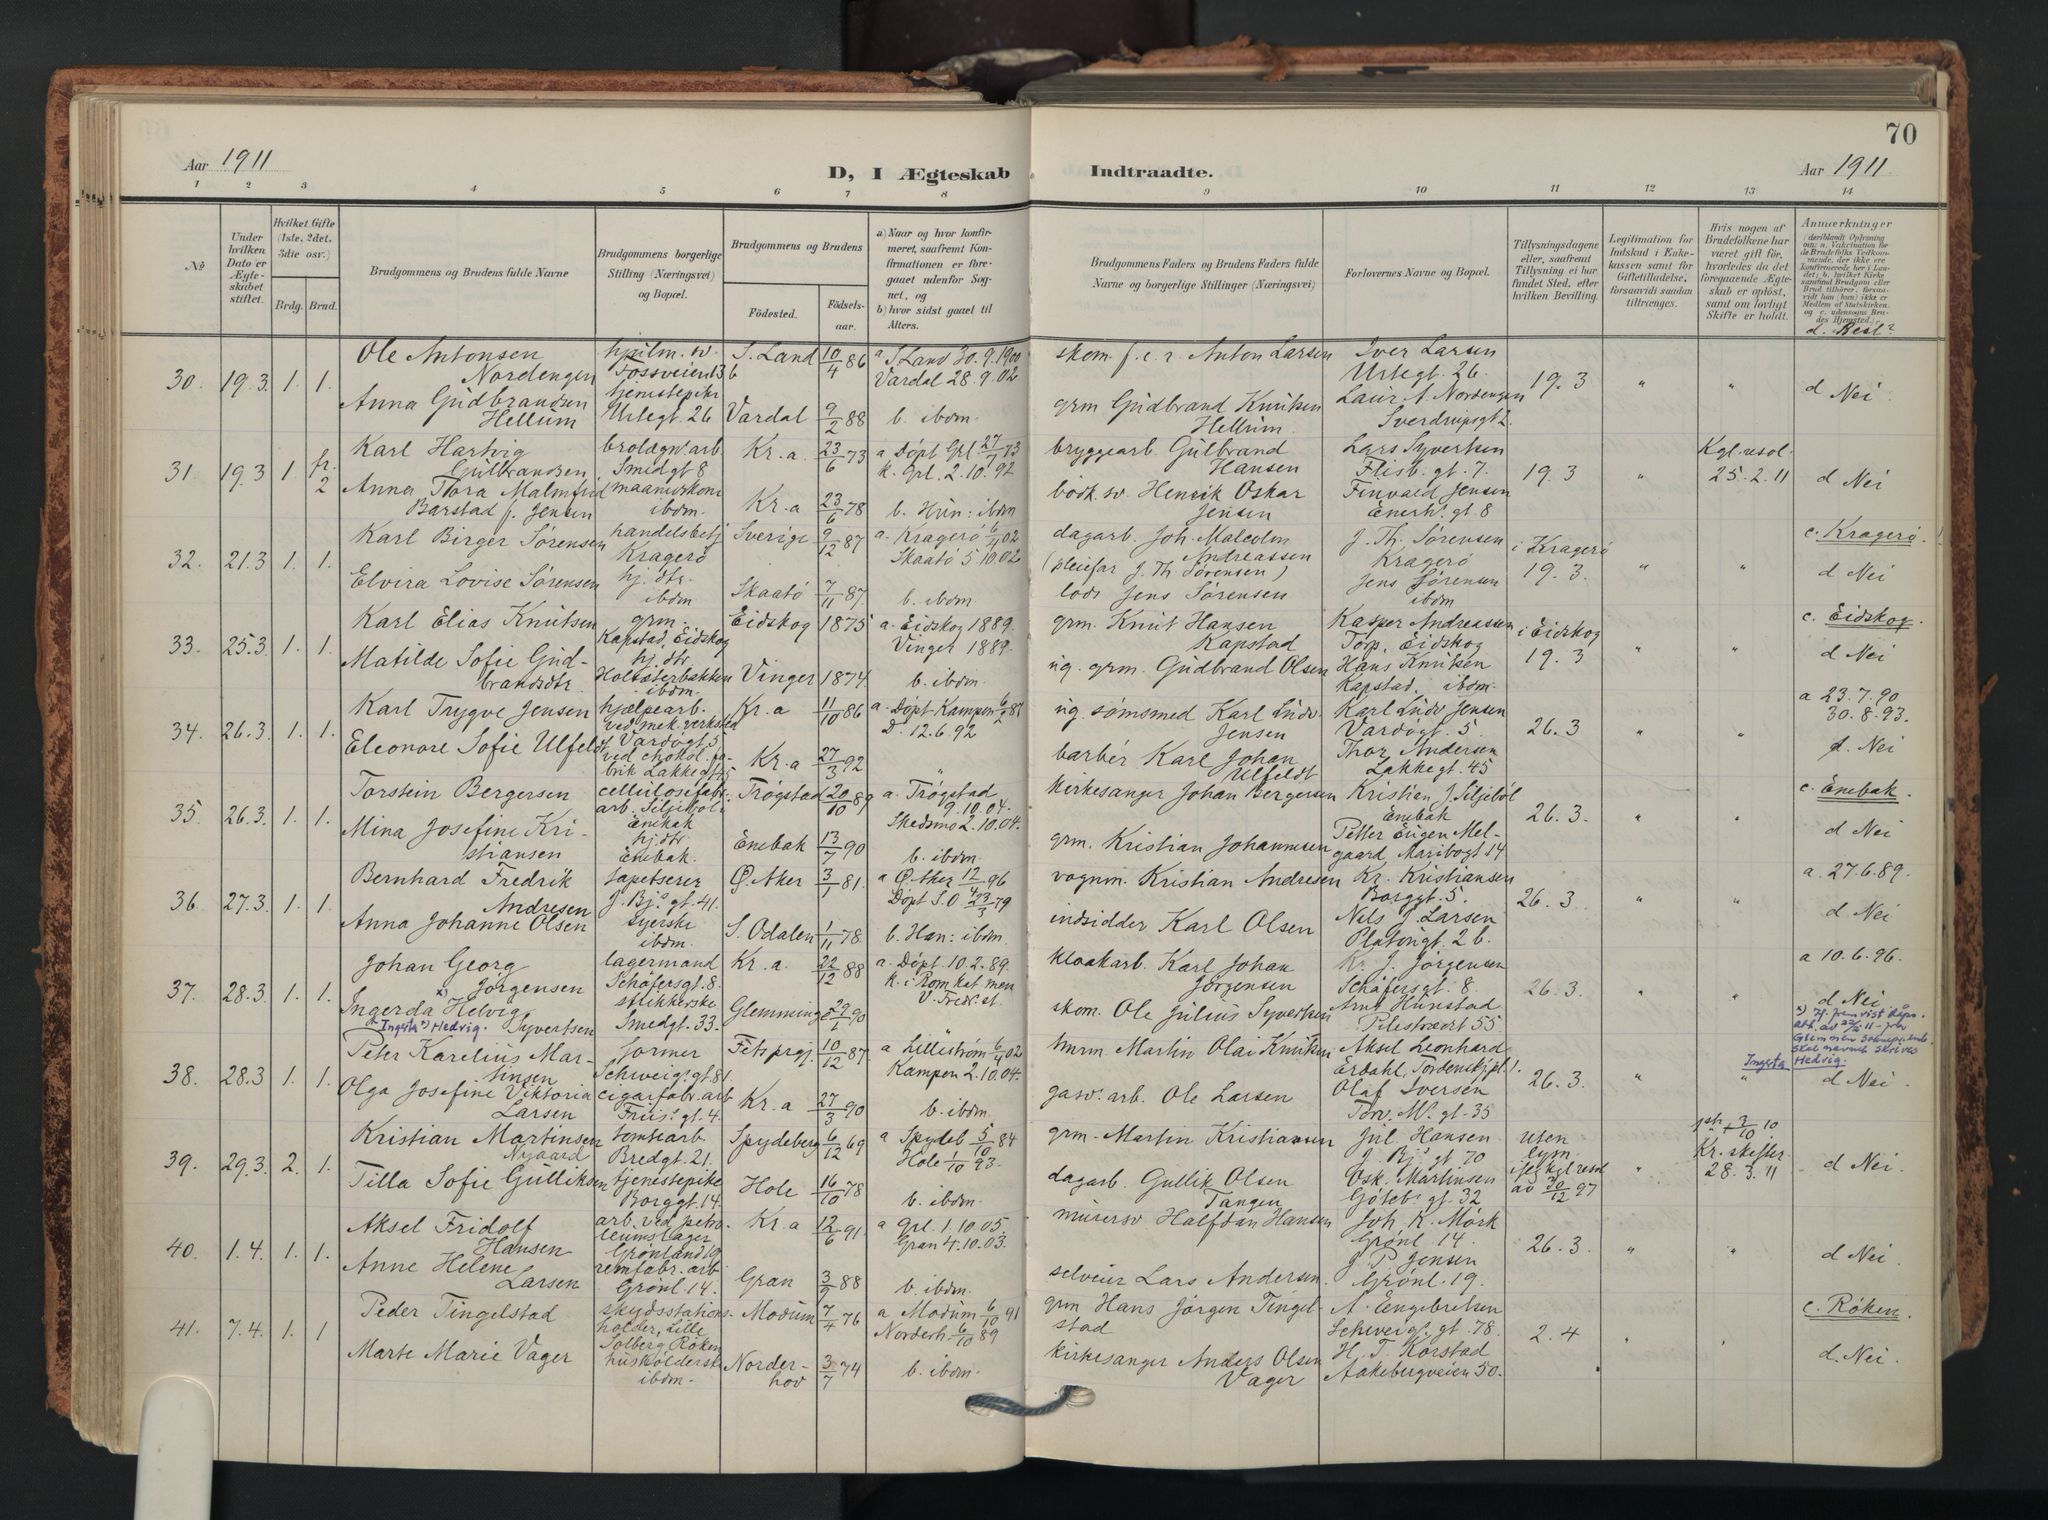 70
Aar 1911
D, I Ægteskab
Indtraadte.
Aar 1911
1 2 3 4 5 6 7 8 9 10 11 12 13 14
No
Under hvilken Dato er Ægteskabet stiftet.
Hvilket Gifte (1ste, 2det, 3die osv.)
Brdg. Brud.
Brudgommens og Brudens fulde Navne
Brudgommens borgerlige Stilling (Næringsvei) og Bopæl.
Brudgommens og Brudens
Födested.
Födsels-aar.
a) Naar og hvor konfirmeret, saafremt Konfirmationen er foregaaet udenfor Sognet, og
b) hvor sidst gaaet til Alters.
Brudgommens Faders og Brudens Faders fulde Navne og borgerlige Stillinger (Næringsvei)
Forlovernes Navne og Bopæl.
Tillysningsdagene eller, saafremt Tillysning ei har fundet Sted, efter hvilken Bevilling.
Legitimation for Indskud i Enkekassen samt for Giftetilladelse, forsaavidt saadan tiltrænges.
Hvis nogen af Brudefolkene har været gift för, hvorledes da det foregaaende Ægteskab er oplöst, samt om lovligt Skifte er holdt.
Anmærkninger
30. 19.3. 1. 1.
Ole Antonsen
Nordengen
Fossveien 13 b
S. Land 10/4 86
a S Land 30.9.1900
Vardal 28.9.02
skom. f.e.r. Anton Larsen
Iver Larsen
Urtegt. 26.
19.3 " "
d Nei
Anna Gudbrandsen
Hellum
tjenestepike
Urtegt 26
Vardal 9/2 88
b. ibdm.
grm Gudbrand Knutsen
Hellum.
Laur. A Nordengen
Sverdrupsgt 2.
31. 19.3 1. fr. 2
Karl Hartvig
Gulbrandsen
brolægn. arb
Smidgt 8
Kr.a 23/6 73
k. Grl. 2.10.92
bryggearb. Gulbrand
Hansen
Lars Syvertsen
Flisb. gt. 7.
19.3 "
Kgl. resol.
25.2.11
d Nei
Anna Tora Malmfrid
Barstad f. Jensen
ibdm.
Kr.a 23/6 78
b. Hun: ibdm
bødk. sv Henrik Oskar
Jensen
Finvald Jensen
Enerh. gt. 8
32. 21.3 1. 1.
Karl Birger Sørensen
handelsbetj
Kragerø
Sverige 9/12 87
a. Kragerø
Skaatø 5 10 02
dagarb. Joh. Malcolm
Andreassen
(pleiefar J. Th. Sørensen)
J. Th. Sørensen
Kragerø
i Kragerø
19.3. " "
c. Kragerø
d Nei
Elvira Lovise Sørensen
hj. dtr.
ibdm
Skaatø 7/11 87.
b. ibdm
lods Jens Sørensen
Jens Sørensen
ibdm
33. 25.3. 1. 1.
Karl Elias Knutsen
grm.
Kapstad, Eidskog
Eidskog 1875
a. Eidskog 1889.
Vinger 1889.
grm. Knut Hansen
Kapstad
Kasper Andreassen
Torp, Eidskog
i Eidskog
19.3 " "
c. Eidskog
d Nei
Matilde Sofie Gud-
brandsdtr.
hj. dtr
ibdm.
Vinger 1874.
b. ibdm.
ug. grm. Gudbrand Olsen
Hans Knutsen
Kapstad. ibdm.
34. 26.3. 1. 1.
Karl Trygve Jensen
hjælpearb.
ved mek. verksted
Vardøgt. 5
Kr.a 11/10 86
D. 12.6.92
ug. sømsmed Karl Ludv.
Jensen
Karl Ludv Jensen
Vardøgt. 5.
26.3 " "
a 23.7.90
30.8.93.
d. Nei
Eleonore Sofie Ulfeldt
Kr.a 27/3 92
"
barbér Karl Johan
Ulfeldt
Thor Andersen
Lakkegt. 45
35. 26.3. 1. 1.
Torstein Bergersen
cellulosefabr.
arb. Siljebøl
Enebak
Trøgstad 20/10 89
a. Trøgstad
9.10.04.
Skedsmo 2.10.04.
kirkesanger Johan Bergersen
Kristian J. Siljebøl
Enebak
26.3. " "
c. Enebak.
d Nei
Mina Josefine Kri-
stiansen
hj. dtr
Enebak.
Enebak 13/7 90
b. ibdm.
grm. Kristian Johannesen
Petter Eugen Mel-
gaard, Maribogt 14
36. 27.3. 1. 1.
Bernhard Fredrik
Andresen
tapetserer
J. Bj.s gt. 41.
Ø. Aker 3/1 81.
a Ø. Aker 12/4 96
Døpt S.O 23/3 79
vognm. Kristian Andresen
Kr. Kristiansen
Borggt. 5.
26.3. " "
a. 27.6.89.
d Nei
Anna Johanne Olsen
syerske
ibdm.
S. Odalen 1/11 78.
b. Han: ibdm.
indsidder Karl Olsen
Nils J. Larsen
Platousgt. 2 b.
37. 28.3. 1. 1.
Johan Georg
Jørgensen
lagermand
Schøfersgt. 8.
Kr.a. 22/12 88
a. Døpt 10.2.89.
k. i Rom. kat. men
kloakarb. Karl Johan
Jørgensen
Kr. J. Jørgensen
Schøfersgt. 8.
26.3. " "
a 10.6.96.
d Nei
Ingerda x) Helvig
Ingerta x) Hedvig. Syvertsen
strikkerske
Smedgt. 33.
Glemminge 29/1 90
skom. Ole Julius Syvertsen
Arnt Hunstad
Pilestrædet 55.
Ingerta Hedvig.
38. 28.3 1. 1.
Peter Karelius Mar-
tinsen
former
Schweig.s gt. 81.
Fets prgj. 10/12 87.
a Lillestrøm 6/4 02
Kampen 2.10.04.
tmrm. Martin Olai Knutsen
Aksel Leonhard
Erdahl, Tordenskjpl. 1.
26.3. " "
d Nei
Olga Josefine Viktoria
Larsen
cigarfabr. arb
Friis. gt. 4.
Kr.a 27/3 90
b. ibdm.
gasv. arb. Ole Larsen
Olaf Iversen
Torv. M. gt. 35
39. 29.3. 2. 1.
Kristian Martinsen
Nygaard
tomtearb.
Bredgt. 21.
Spydeberg 6/12 69
a Spydeb 5/10 84
Hole 1/10 93.
grm. Martin Kristiansen
Jul. Hansen
J. Bj.s gt 70
uten
lysn.
+ 3/10 10
Kr. skifter.
28.3.11
d Nei.
Tilla Sofie Gulliksen
tjenestepike
Borggt. 14.
Hole 16/10 78
b. ibdm.
dagarb. Gullik Olsen
Tangen
Osk. Martinsen
Göteb. gt. 32
av 30/12 97
40. 1.4. 1. 1.
Aksel Fridolf
Hansen
arb. ved petro-
leumslager
Grønland 19
Kr.a 12/6 91
a grl. 1.10.05.
Gran 4.10.03.
murersv Halfdan Hansen
Joh. K. Mørk
Grønl. 14.
26.3. " "
d Nei
Anne Helene
Larsen
remfabr. arb
Grønl. 14.
Gran 3/9 88
b. ibdm.
selveier Lars Andersen.
J. P. Jensen
Grønl. 19.
41. 7.4. 1. 1
Peder Tingelstad
skydsstations-
holder, Lille
Solberg, Røken
Modum 7/4 76
a Modum 6/10 91
Norderh. 6/10 89
grm Hans Jørgen Tingel-
stad
A. Engebretsen
Schweig.s gt. 78.
2.4 " "
c. Røken.
d. Nei.
Marte Marie Vager
husholderske
ibdm.
Norder-
hov 3/7 74
b. ibdm.
kirkesanger Anders Olsen
Vager
H. T. Korstad
Aakebergveien 50.